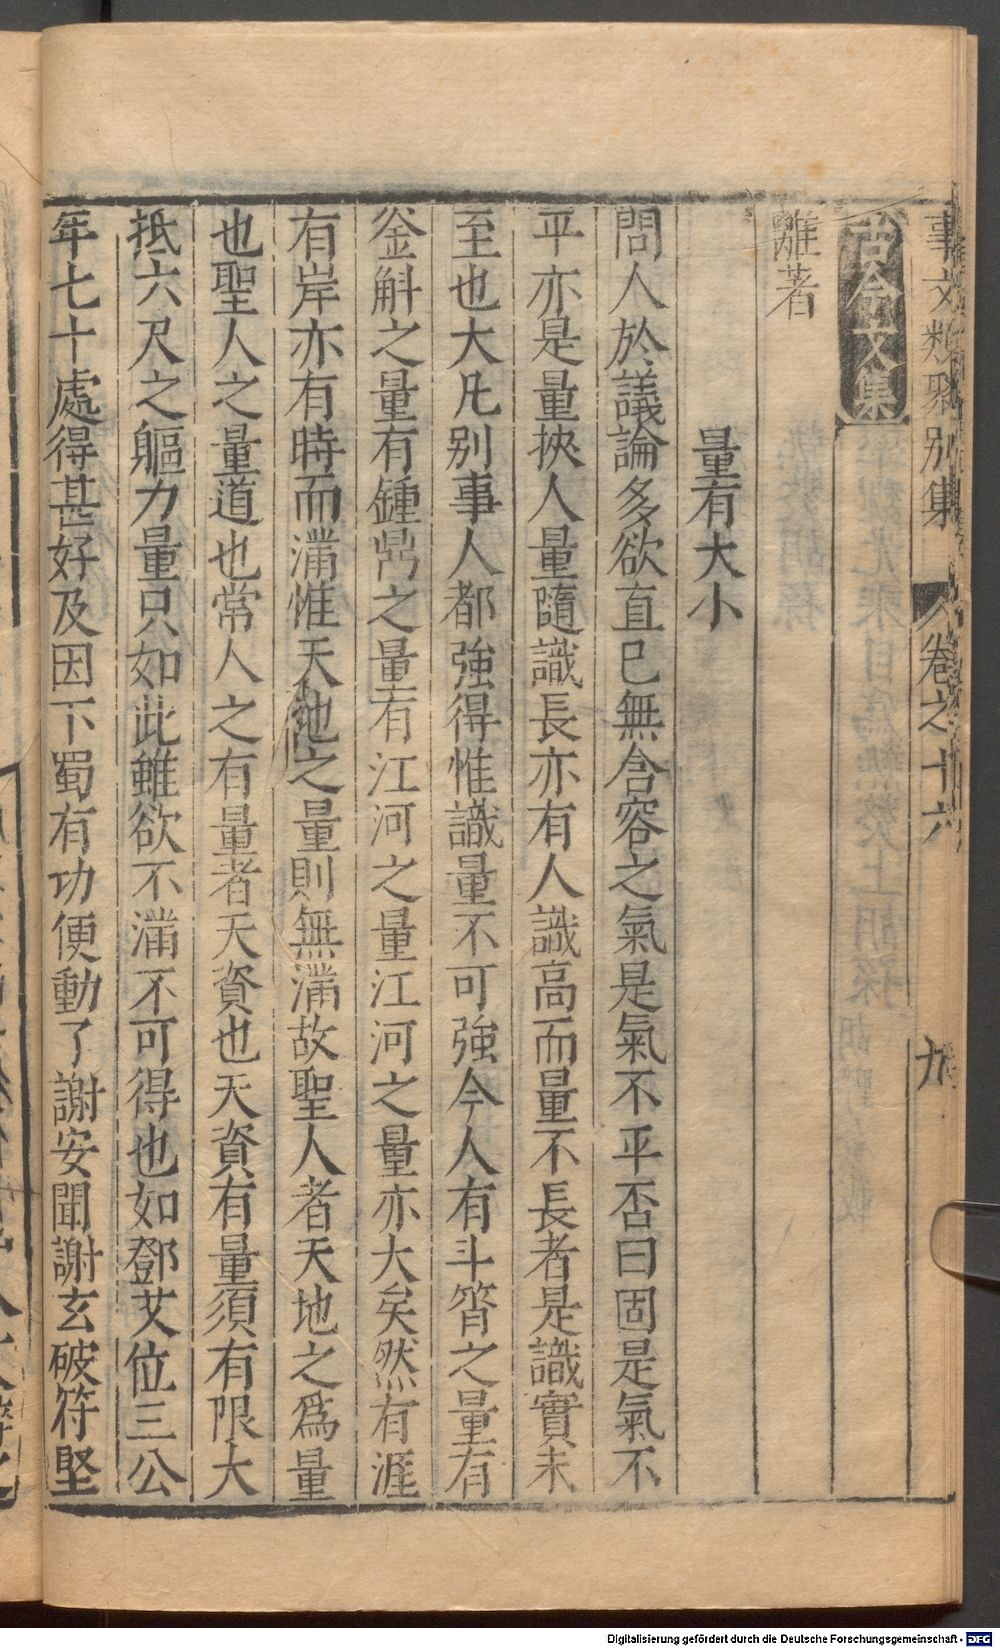 事文類聚别集 卷之十六 九
古今文集
雜著
量有大小
問人於議論多欲直已無含容之氣是氣不平否曰固是氣不
平亦是量挾人量隨識長亦有人識高而量不長者是識實未
至也大凡别事人都強得惟識量不可強今人有斗筲之量有
釜斛之量有鍾鼎之量有江河之量江河之量亦大矣然有涯
有岸亦有時而滿惟天地之量則無滿故聖人者天地之爲量
也聖人之量道也常人之有量者天資也天資有量須有限大
抵六尺之軀力量只如此雖欲不滿不可得也如鄧艾位三公
年七十處得甚好及因下蜀有功便動了謝安聞謝玄破符堅
Digitalisierung gefördert durch die Deutsche Forschungsgemeinschaft - DFG